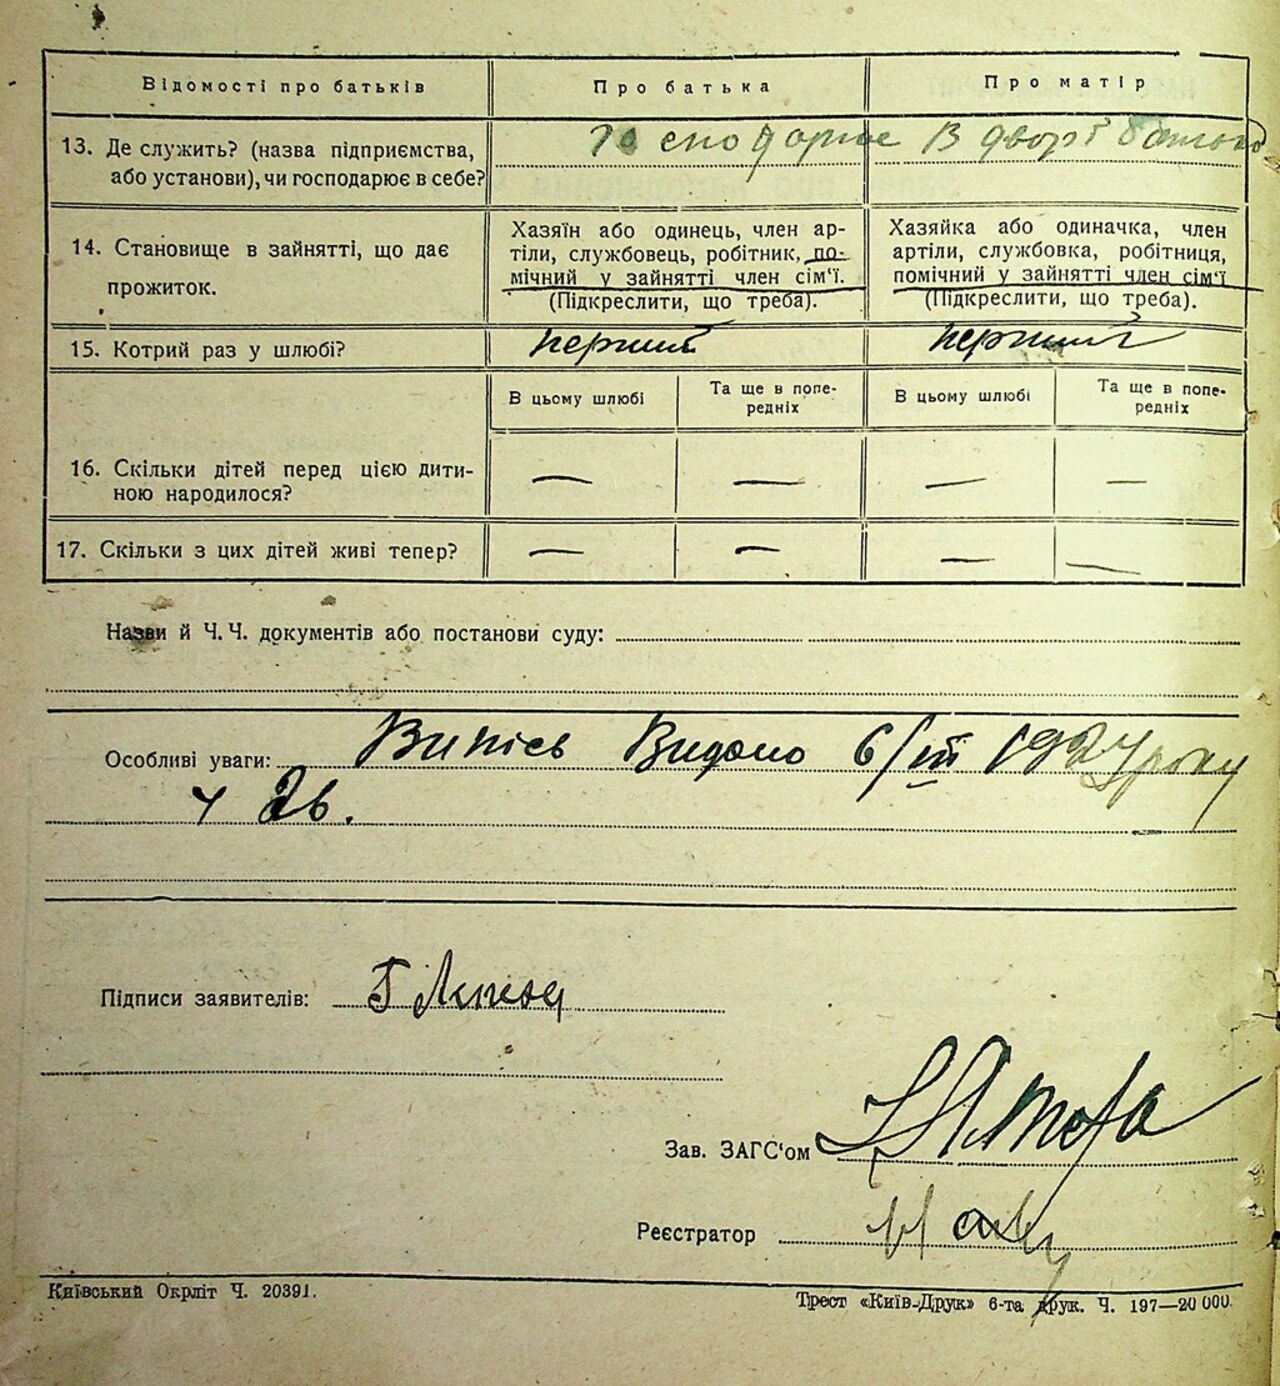 Відомості про батьків
Про батька
Про матір
13. Де служить? (назва підприємства,
або установи), чи господарює в себе?
Господарює в дворі батька
14. Становище в зайнятті, що дає
прожиток.
Хазяїн або одинець, член ар-
тіли, службовець, робітник, по-
мічний у зайнятті член сім‘ї.
(Підкреслити, що треба).
Хазяйка або одиначка, член
артіли, службовка, робітниця,
помічний у зайнятті член сім‘ї
(Підкреслити, що треба).
15. Котрий раз у шлюбі?
перший
перший
В цьому шлюбі
Та ще в попе-
редніх
В цьому шлюбі
Та ще в попе-
редніх
16. Скільки дітей перед цією дити-
ною народилося?
— — — —
17. Скільки з цих дітей живі тепер?
— — — —
Назви й Ч. Ч. документів або постанови суду:
Особливі уваги: Випись Видано 6/III 1927 року
Ч 26.
Підписи заявителів:
Зав. ЗАГС‘ом
Реєстратор
Київський Окрліт Ч. 20391.
Трест «Київ-Друк» 6-та друк. Ч. 197—20 000.